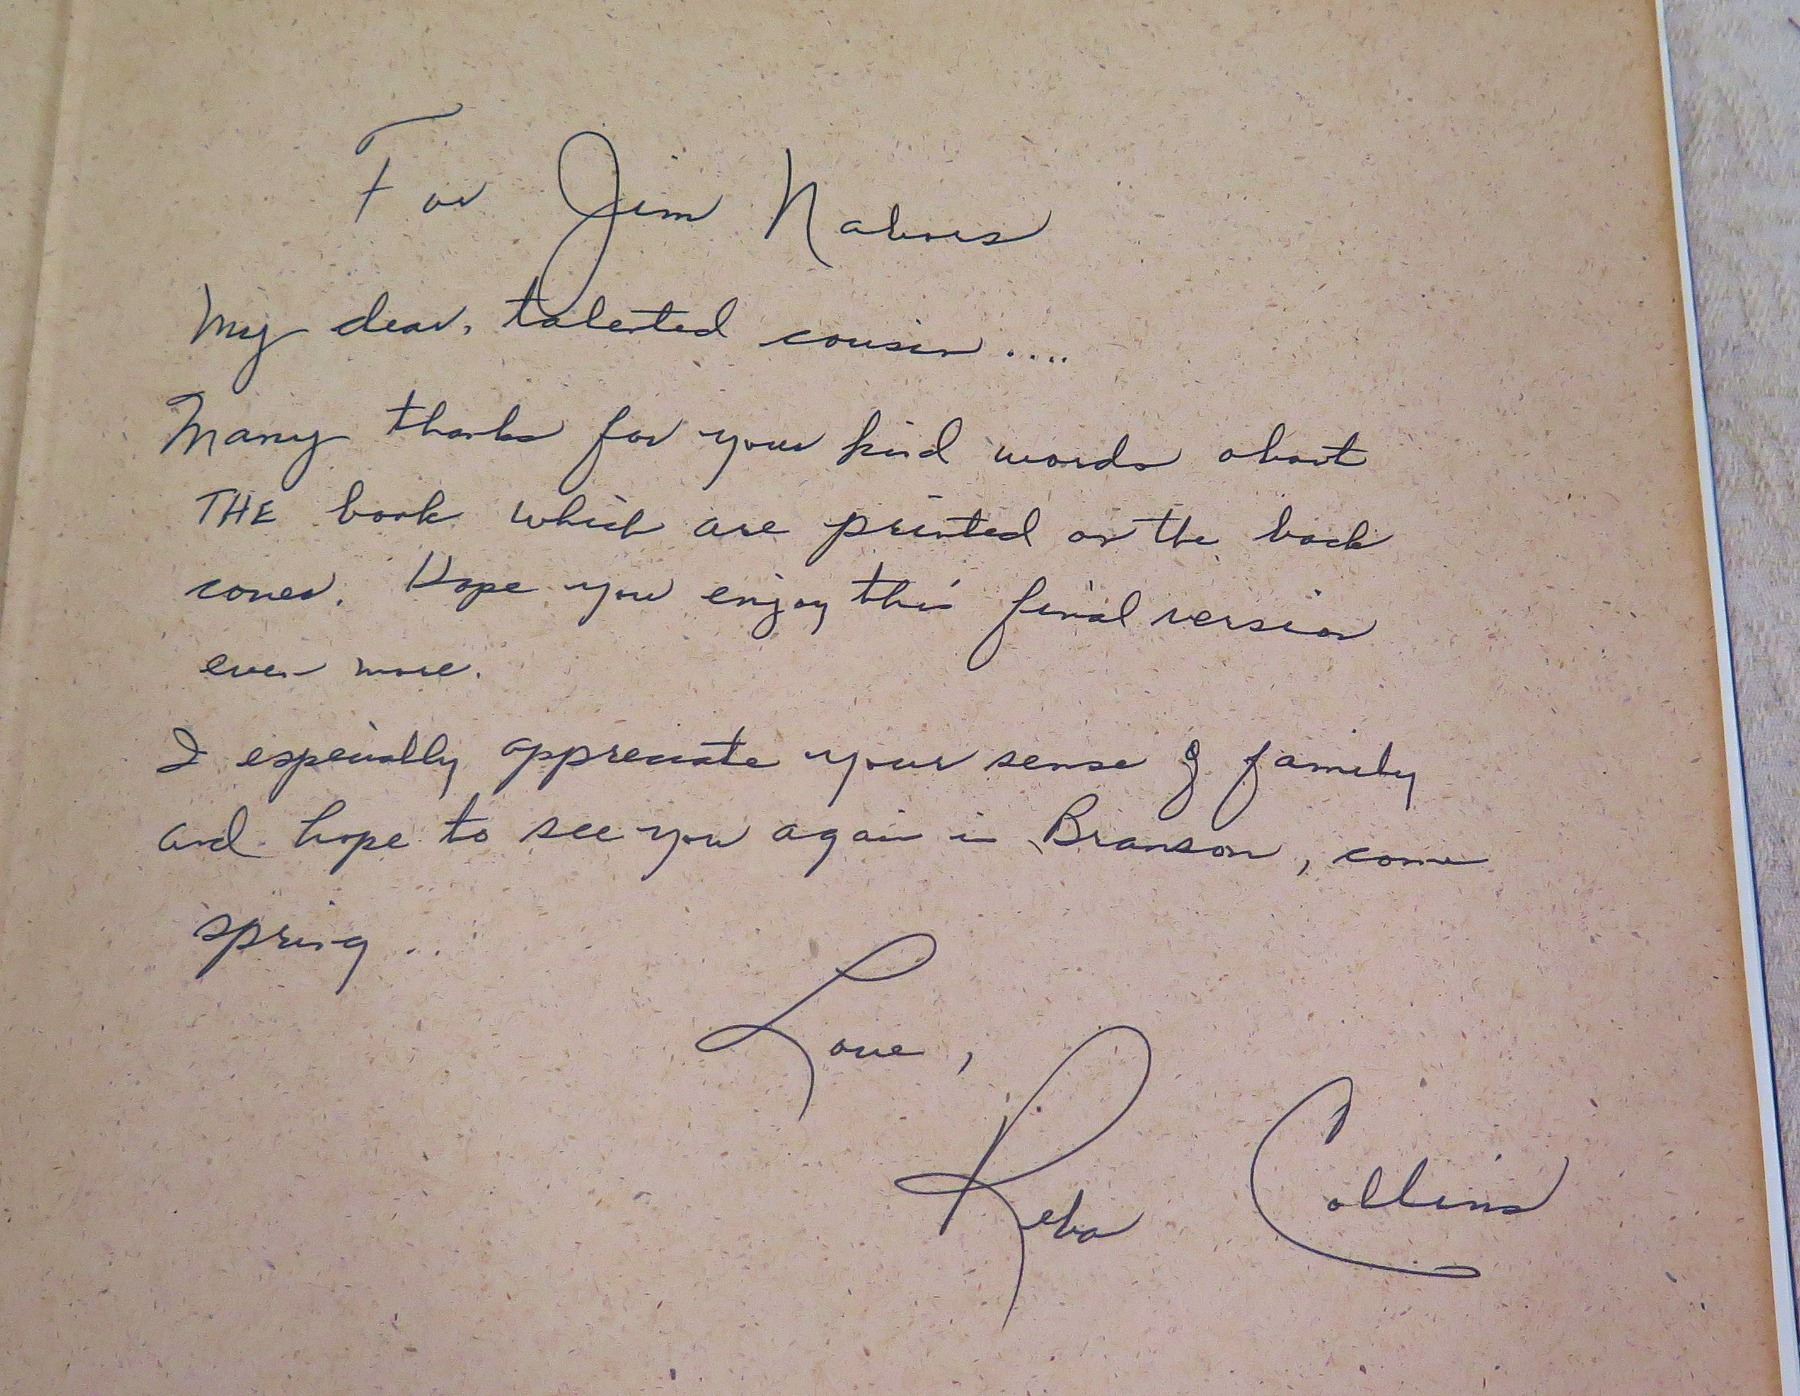 For Jim Nabors
My dear, talented cousin ....
Many thanks for your kind words about
THE book which are printed on the back
cover. Hope you enjoy this final version
even more.
I especially appreciate your sense of family
and hope to see you again in Branson, come
spring...
Love,
Reba Collins